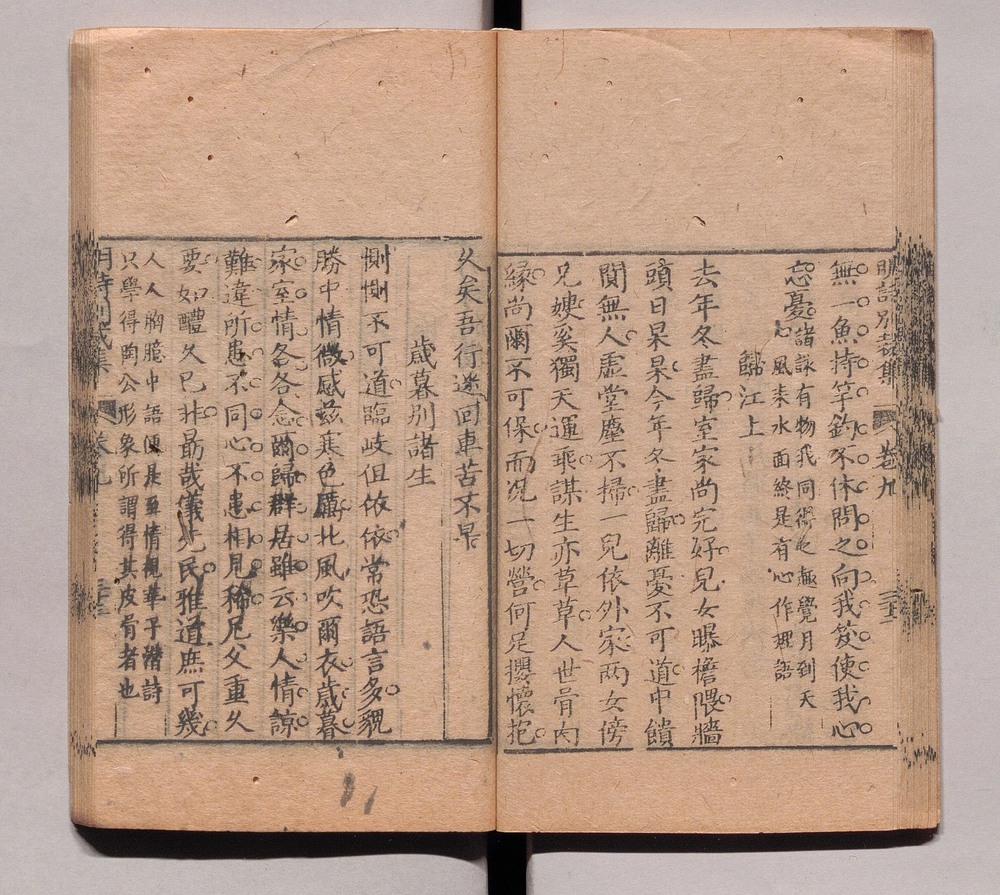 明詩別裁集 卷九
無一魚持竿釣不休問之向我笑使我心
忘憂諸詠有物我同得之趣覺月到天
心風來水面終是有心作理語
歸江上
去年冬盡歸室家尚完好兒女曝檐隈牆
頭日杲杲今年冬盡歸離憂不可道中饋
闃無人虛堂塵不掃一兒依外家兩女傍
兄嫂奚獨天運乖謀生亦草草人世骨肉
緣尚爾不可保而況一切營何足攖懷抱
久矣吾行迷回車苦不早
歲暮別諸生
惻惻不可道臨歧但依依常恐語言多覶
勝中情微感茲寒色厲北風吹爾衣歲暮
家室情各各念爾歸群居雖云樂人情諒
難違所患不同心不患相見稀兄父重久
要如醴久已非勗哉儀先民雅道庶可幾
人人胸臆中語便是至情觀華子潛詩
只學得陶公形象所謂得其皮骨者也
明詩別裁集 卷九 三十三